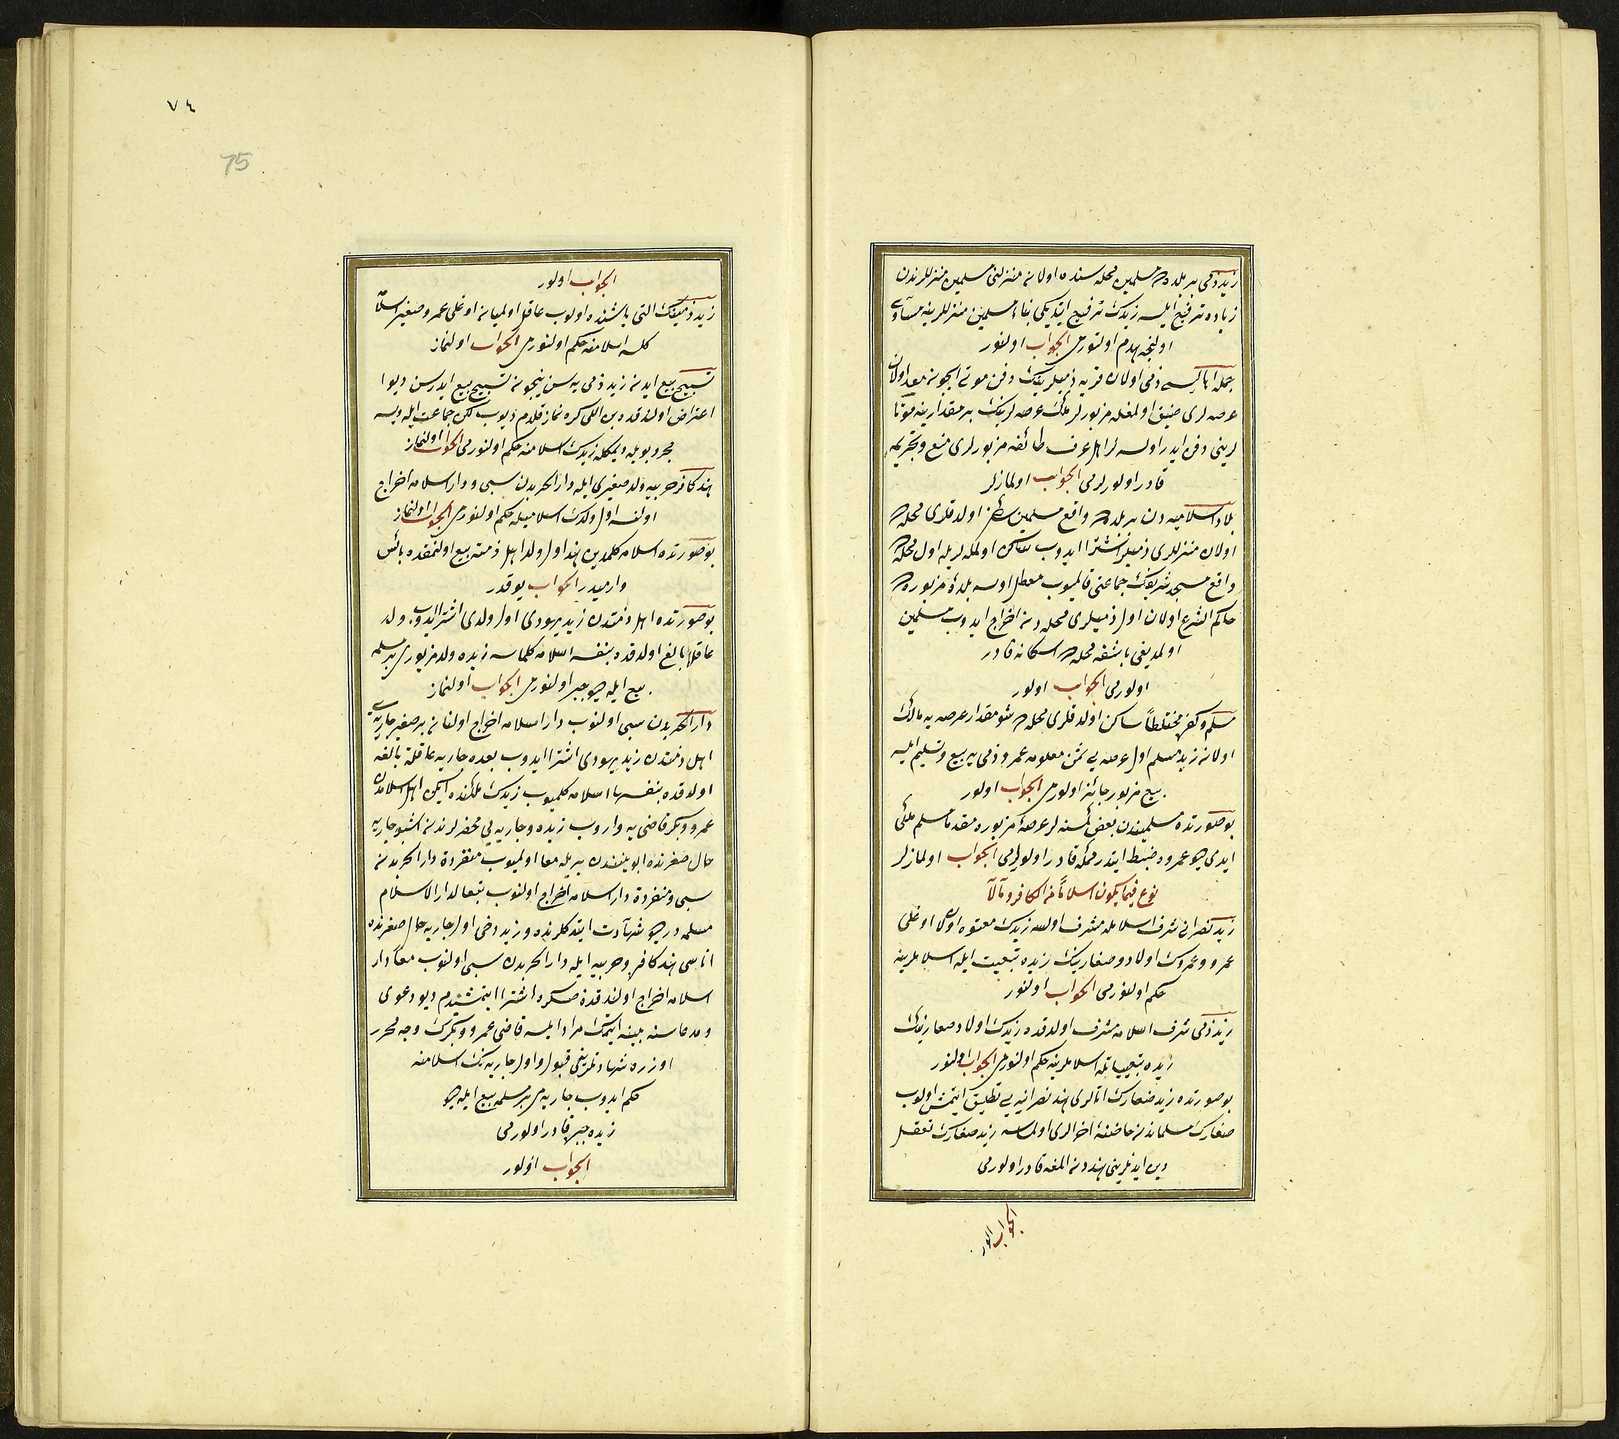 زید ذمی بر بلده‌ده مسلمین محله‌سنده اولان منزلنی مسلمین منزللرندن
زیاده ترفیع ایلسه زیدك ترفیع ایتدیكی بناء مسلمین منزللرینه مساوی
اولنجه هدم اولنورمی الجواب اولنور
جمله اهالیسی ذمی اولان قریه ذمیلرینك دفن موتی ایچون معد اولان
عرصه‌لری ضیق اولمغله مزبورلر ملك عرصه‌لرینك بر مقدارینه موتا
لرینی دفن ایدر اولسه‌لر اهل عرف طائفه مزبورلری منع و تجریمه
قادر اولورلرمی الجواب اولمازلر
بلاد اسلامیه‌دن بر بلده‌ده واقع مسلمین ساكنلر اولدقلری محله‌ده
اولان منزللری ذمیلر اشترا ایدوب ساكن اولمه‌لریله اول محله‌ده
واقع مسجد شریفك جماعتی قالمیوب معطل اولسه بلدهٔ مزبوره‌ده
حاكم الشرع اولان اول ذمیلری محله‌دن اخراج ایدوب مسلمین
اولمدیغی باشقه محله‌ده اسكانه قادر
اولورمی الجواب اولور
مسلم و كفره مختلطاً ساكن اولدقلری محله‌ده شو مقدار عرصه‌یه مالك
اولان زید مسلم اول عرصه‌یی ثمن معلومه عمرو ذمی‌یه بیع و تسلیم ایلسه
بیع مزبور جائز اولورمی الجواب اولور
بو صورتده مسلمیندن بعض كمسنه‌لر عرصهٔ مزبوره مقدما مسلم ملكی
ایدی دیو عمروه ضبط ایتدرممكه قادر اولورلرمی الجواب اولمازلر
نوع فیما یكون اسلاماً من الكافر و مالا
زید نصرانی شرف اسلامله مشرف اولسه زیدك معتوه اولان اوغلی
عمرو و عمروك اولاد صغارینك زیده تبعیت ایله اسلاملرینه
حكم اولنورمی الجواب اولنور
زید ذمی شرف اسلامله مشرف اولدقده زیدك اولاد صغارینك
زیده تبعیتله اسلاملرینه حكم اولنورمی الجواب اولنور
بو صورتده زید صغارك انالری هند نصرانیه‌یی تطلیق ایتمش اولوب
صغارك مسلماندن حاضنه اخرالری اولماسه زید صغارك تعقل
دین ایدنلرینی هنددن المغه قادر اولورمی
الجواب اولور
٧٤
75
الجواب اولور
زید ذمینك التی یاشنده اولوب عاقل اولمیان اوغلی عمرو صغیر اسلامه
كلسه اسلامنه حكم اولنورمی الجواب اولنماز
تسبیح بیع ایدن زید ذمی‌یه سن نیچون تسبیح بیع ایدرسن دیو
اعتراض اولندقده بن اللی كره نماز قلدم دیوب لكن جماعت ایله دیمسه
مجرد بویله دیمكله زیدك اسلامنه حكم اولنورمی الجواب اولنماز
هند كافره حربیه ولد صغیری ایله دار الحربدن سبی و دار اسلامه اخراج
اولنسه اول ولدك اسلامیله حكم اولنورمی الجواب اولنماز
بو صورتده اسلامه كلمدین هند اول ولد اهل ذمته بیع اولنمقده بائس
وارمیدر الجواب یوقدر
بو صورتده اهل ذمتدن زید یهودی اول ولدی اشترا ایدوب ولد
عاقلا بالغ اولدقده بنفسه اسلامه كلماسه زیده ولد مزبوری بر مسلمه
بیع ایله دیو جبر اولنورمی الجواب اولنماز
دار الحربدن سبی اولنوب دار اسلامه اخراج اولنان بر صغیره جاریه‌یی
اهل ذمتدن زید یهودی اشترا ایدوب بعده جاریه عاقله بالغه
اولدقده بنفسها اسلامه كلمیوب زیدك ملكنده ایكن اهل اسلامدن
عمرو و بكر قاضی‌یه واروب زیده و جاریه‌یی محضرلرنده اشبو جاریه
حال صغرنده ابوینندن بریله معا اولمیوب منفردة دار الحربدن
سبی و منفردة دار اسلامه اخراج اولنوب تبعا لدار الاسلام
مسلمه‌در دیو شهادت ایتدكلرنده و زید دخی اول جاریه حال صغرنده
اناسی هند كافره حربیه ایله دار الحربدن سبی اولنوب معا دار
اسلامه اخراج اولندقدن صكره اشترا ایتمشیدم دیو دعوی
و مدعاسنه بینه ایتمك مراد ایلسه قاضی عمرو و بكرك وجه محرر
اوزره شهادتلرینی قبول و اول جاریه‌نك اسلامنه
حكم ایدوب جاریه‌یی بر مسلمه بیع ایله دیو
زیده جبره قادر اولورمی
الجواب اولور